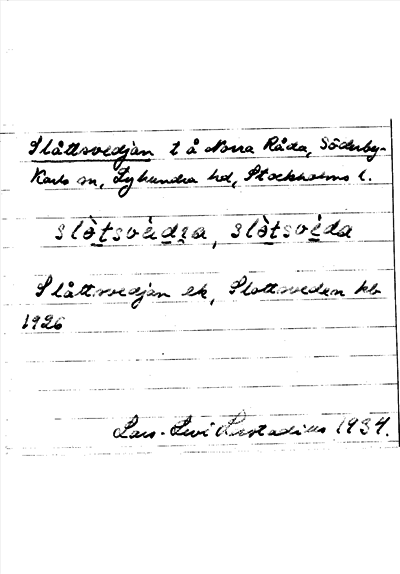 Slåttsvedjan t å Norra Råda, Söderby-
Karls sn, Lyhundra hd, Stockholms l.
slə̀tsvèdʒa, slə̀tsvèda
Slåttsvedjan ek, Slottsvedan kb
1926
Lars-Levi Læstadius 1934.